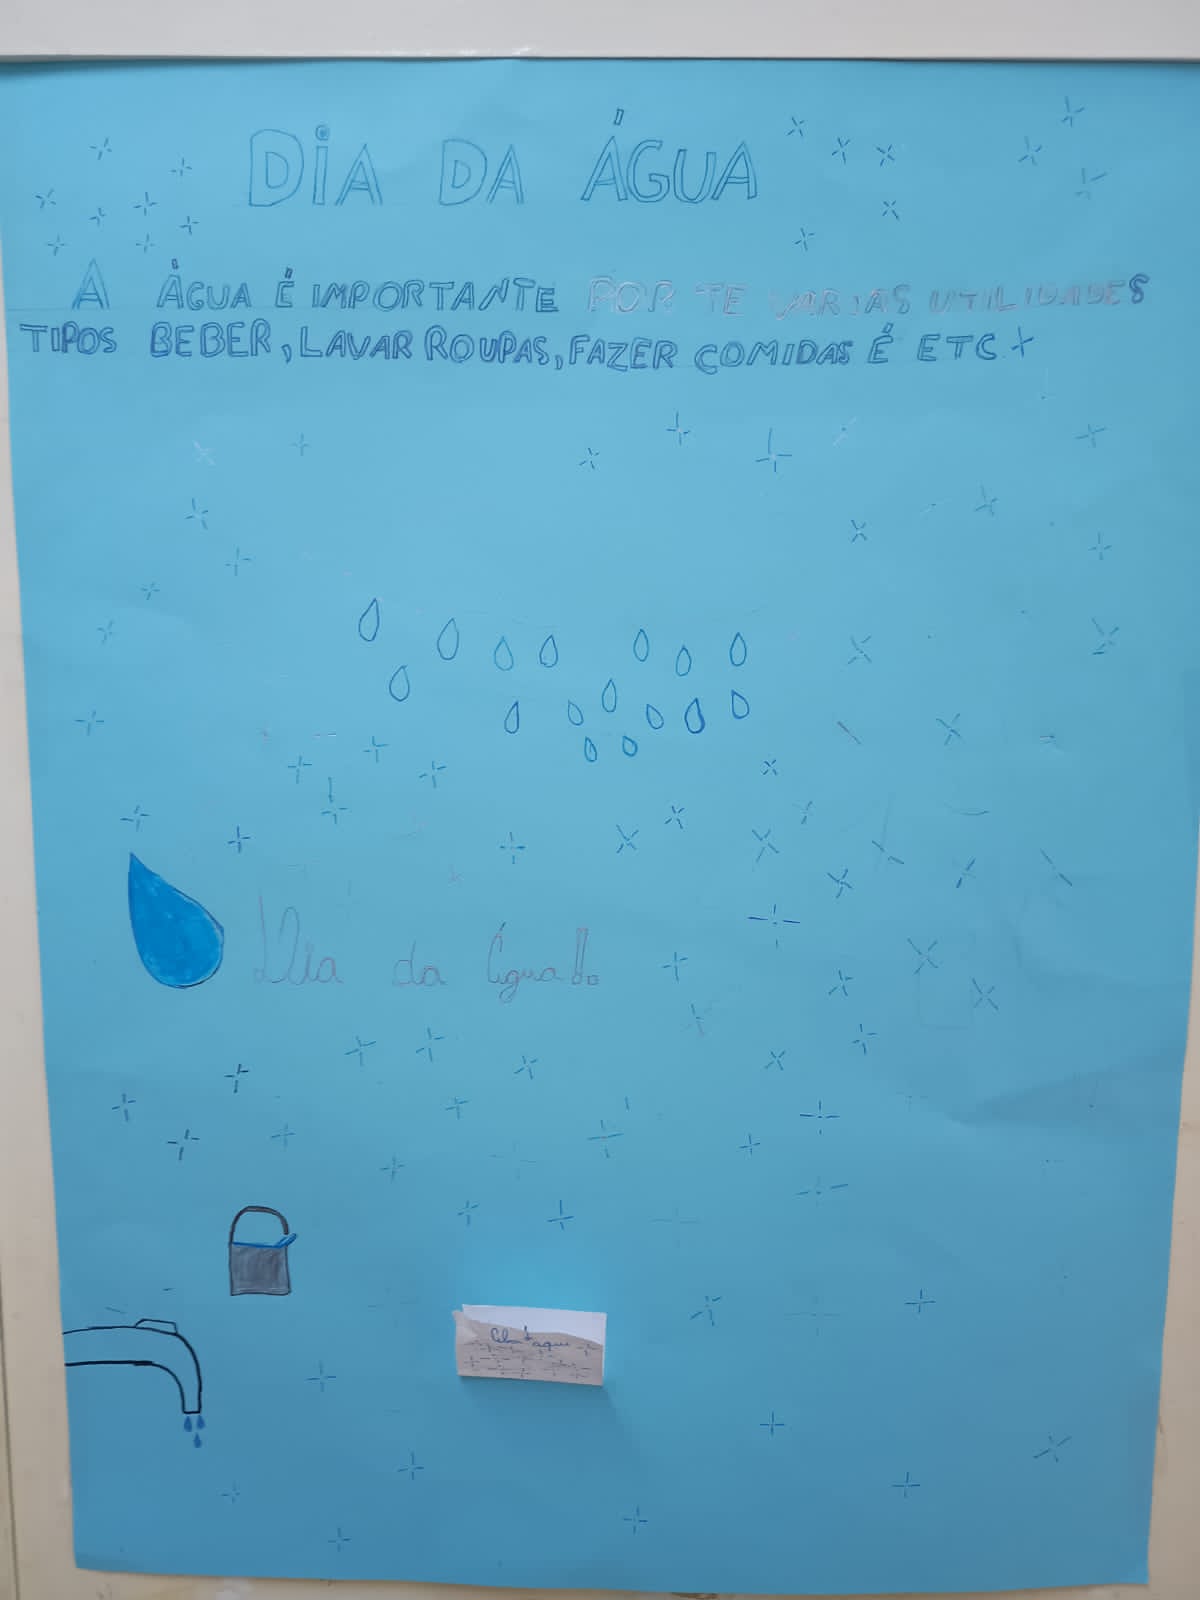 DIA DA ÁGUA
A ÁGUA É IMPORTANTE POR TE VARIAS UTILIDADES
TIPOS BEBER, LAVAR ROUPAS, FAZER COMIDAS É ETC +
Dia da Água!